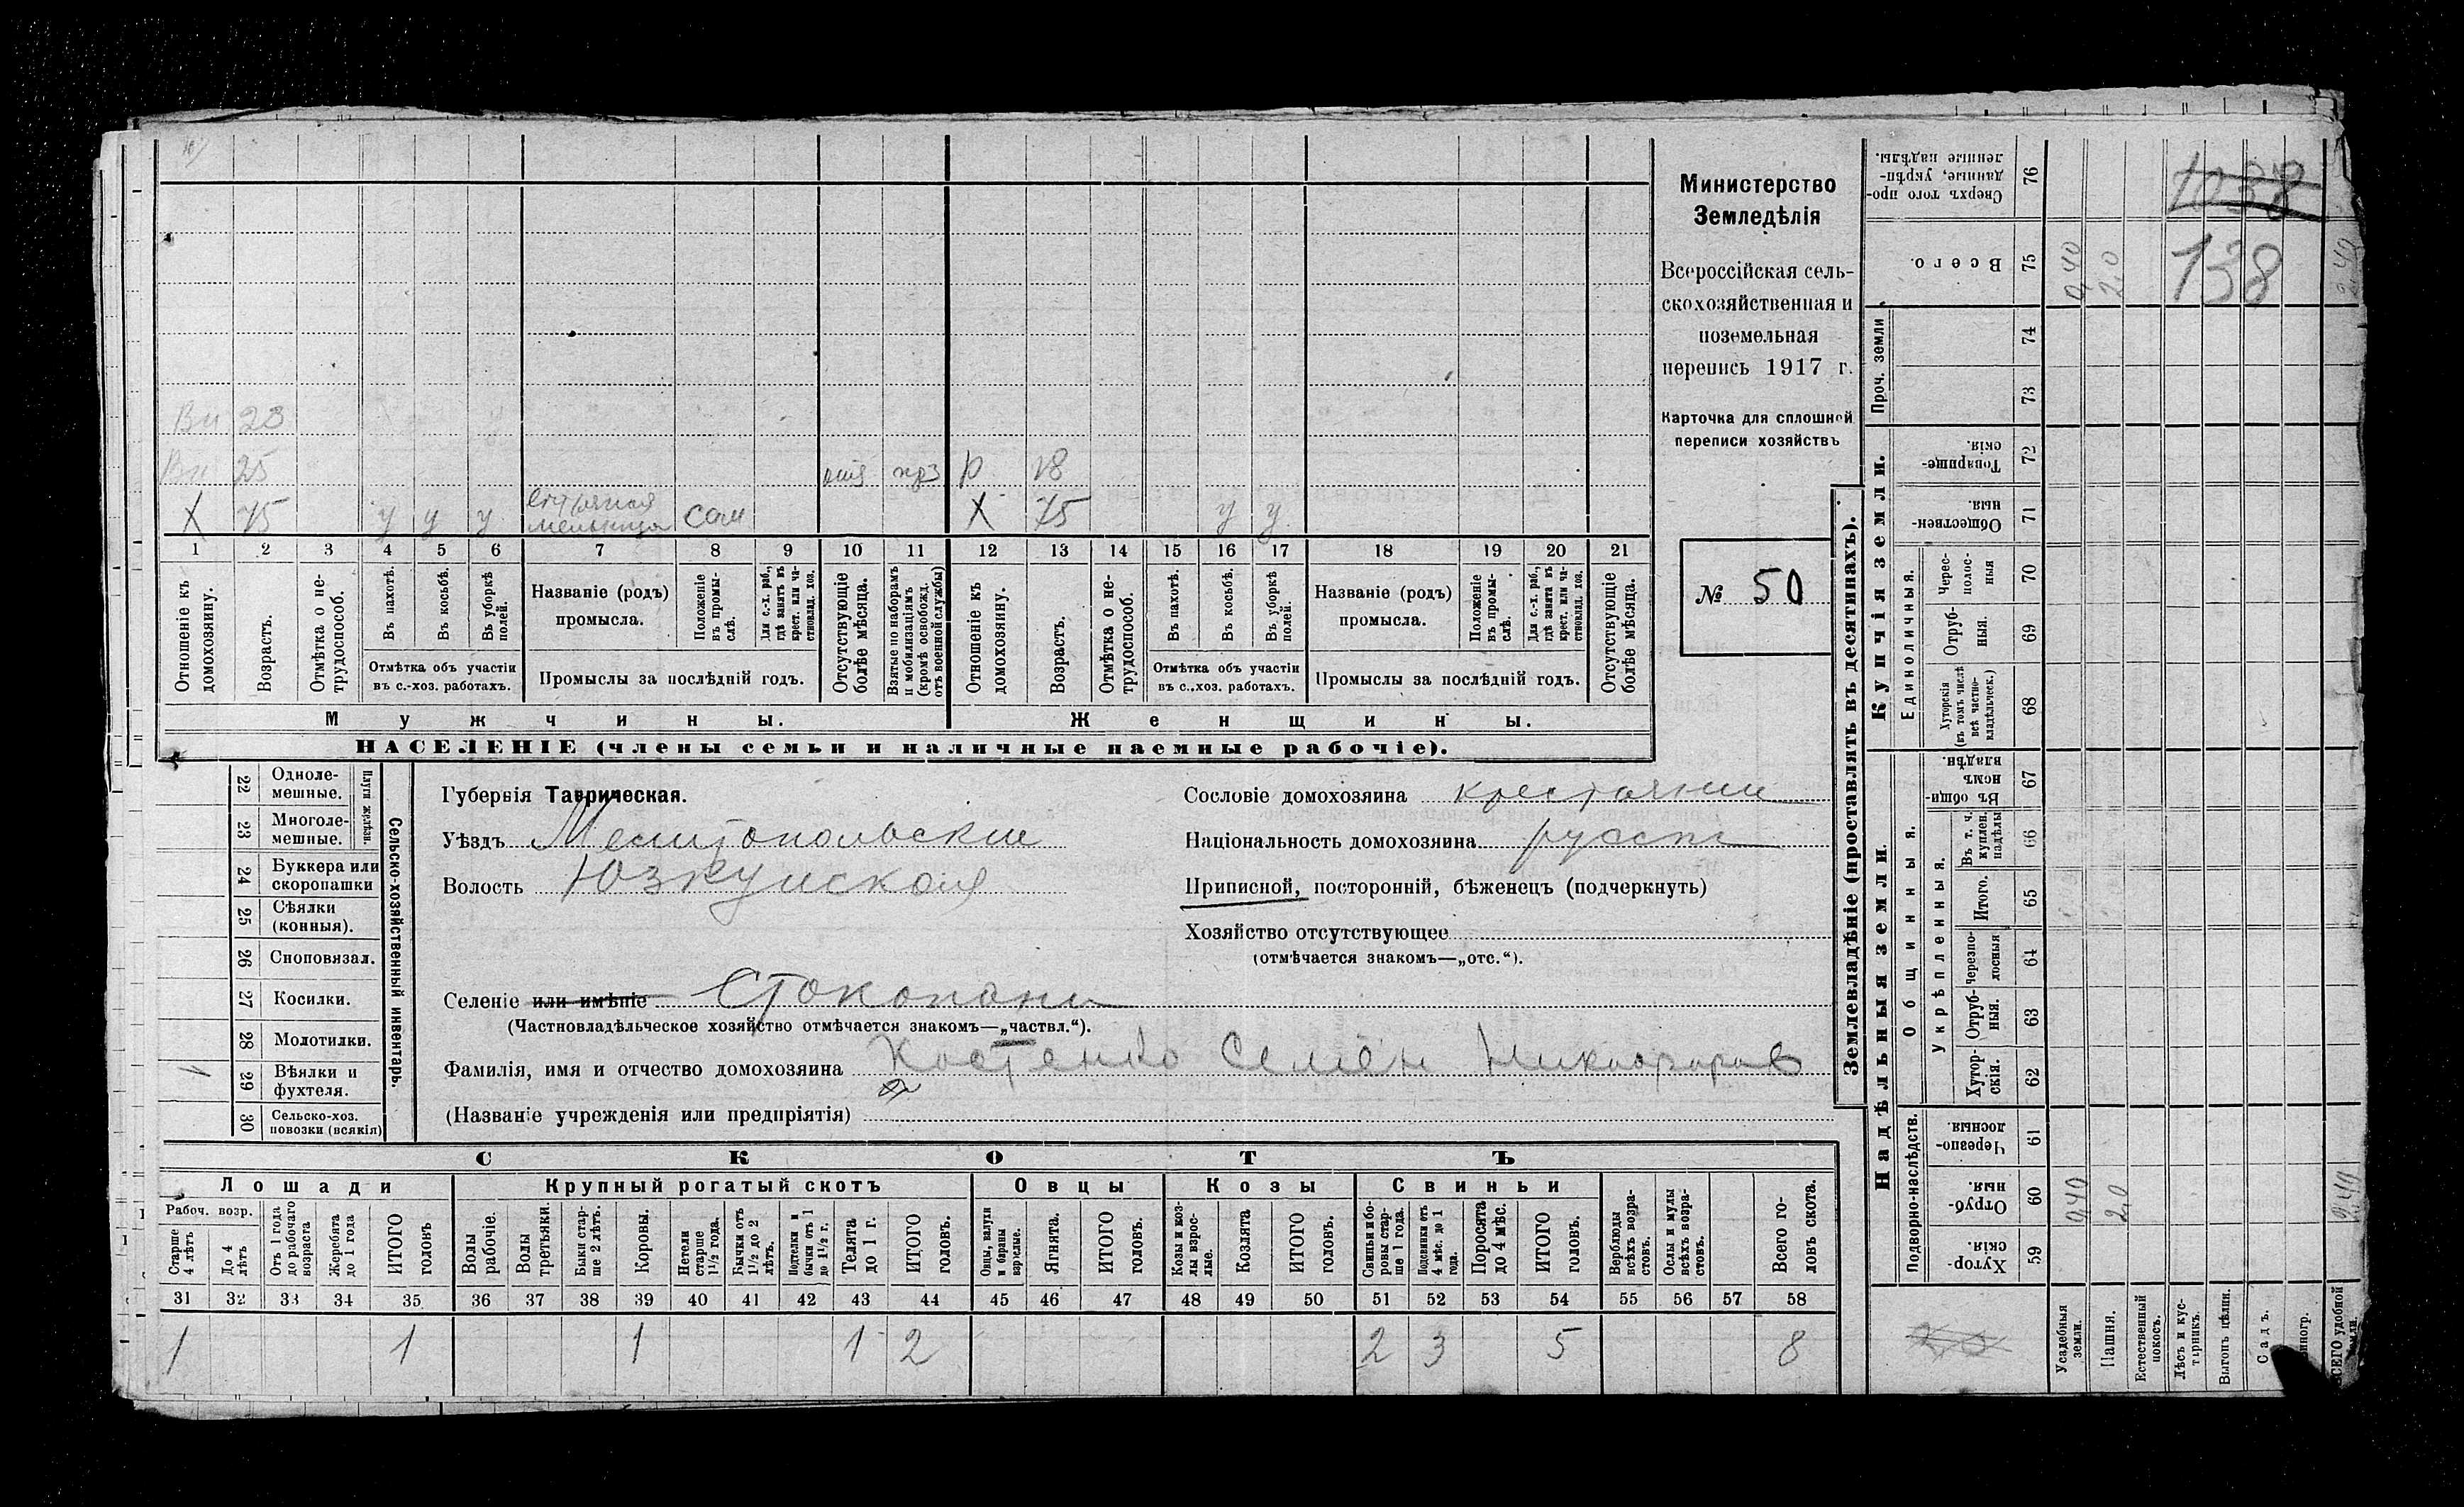 Министерство
Земледѣлія
Всероссійская сель-
скохозяйственная и
поземельная
перепись 1917 г.
Карточка для сплошной
переписи хозяйствъ
№ 50
Ви 23
Ви 25 р 18
Х 75 у у у мельница сам Х 75 у у
1 2 3 4 5 6 7 8 9 10 11 12 13 14 15 16 17 18 19 20 21
Отношеніе къ домохозяину.
Возрастъ.
Отмѣтка о не-трудоспособ.
Въ пахотѣ.
Въ косьбѣ.
Въ уборкѣ полей.
Отмѣтка объ участіи въ с.-хоз. работахъ.
Названіе (родъ) промысла.
Положеніе въ промы-слѣ.
Для с.-х. раб., гдѣ занятъ въ крест. или ча-стновлад. хоз.
Промыслы за послѣдній годъ.
Отсутствующіе болѣе мѣсяца.
Взятые по наборамъ и мобилизаціямъ (кромѣ освобожд. отъ военной службы)
Отношеніе къ домохозяину.
Возрастъ.
Отмѣтка о не-трудоспособ.
Въ пахотѣ.
Въ косьбѣ.
Въ уборкѣ полей.
Отмѣтка объ участіи въ с.-хоз. работахъ.
Названіе (родъ) промысла.
Положеніе въ промы-слѣ.
Для с.-х. раб., гдѣ занята въ крест. или ча-стновлад. хоз.
Промыслы за послѣдній годъ.
Отсутствующіе болѣе мѣсяца.
Мужчины.
Женщины.
НАСЕЛЕНІЕ (члены семьи и наличные наемные рабочіе).
Сельско-хозяйственный инвентарь.
Плуги желѣзн.
22 Одноле-мешные.
23 Многоле-мешные.
24 Буккера или скоропашки
25 Сѣялки (конныя).
26 Сноповязал.
27 Косилки.
28 Молотилки.
29 Вѣялки и фухтеля.
30 Сельско-хоз. повозки (всякія)
Губернія Таврическая.
Уѣздъ Мелитопольскій
Волость Юзкуйская
Селеніе или имѣніе Стокопани
(Частновладѣльческое хозяйство отмѣчается знакомъ—„частвл.“).
Фамилія, имя и отчество домохозяина Костенко Семен Никифоров
(Названіе учрежденія или предпріятія)
Сословіе домохозяина крестянин
Національность домохозяина русск
Приписной, посторонній, бѣженецъ (подчеркнуть)
Хозяйство отсутствующее
(отмѣчается знакомъ—„отс.“).
СКОТЪ
Лошади
Крупный рогатый скотъ
Овцы
Козы
Свиньи
Рабоч. возр.
Старше 4 лѣтъ
До 4 лѣтъ
Отъ 1 года до рабочаго возраста
Жеребята до 1 года
ИТОГО головъ
Волы рабочіе.
Волы третьяки.
Быки стар-ше 2 лѣтъ.
Коровы.
Нетели старше 1½ года.
Бычки отъ 1½ до 2 лѣтъ.
Подтелки и бычки отъ 1 до 1½ г.
Телята до 1 г.
ИТОГО головъ.
Овцы, валухи и бараны взрослые.
Ягнята.
ИТОГО головъ.
Козы и коз-лы взрос-лые.
Козлята
ИТОГО головъ.
Свиньи и бо-ровы стар-ше 1 года.
Подсвинки отъ 4 мѣс. до 1 года.
Поросята до 4 мѣс.
ИТОГО головъ.
Верблюды всѣхъ возра-стовъ.
Ослы и мулы всѣхъ возра-стовъ.
Всего го-ловъ скота.
31 32 33 34 35 36 37 38 39 40 41 42 43 44 45 46 47 48 49 50 51 52 53 54 55 56 57 58
1 1 1 1 2 2 3 5 8
Землевладѣніе (проставлять въ десятинахъ).
Купчія земли.
Надѣльныя земли.
Сверхъ того про-данные, укрѣп-ленные надѣлы. 76 1038
Всего. 75 0,40 2,0 138 2,40
Проч. земли 74
73
Товарище-скія. 72
Обществен-ныя 71
Единоличныя.
Черес-полос-ныя 70
Отруб-ныя. 69
Хуторскія (въ томъ числѣ всѣ частно-владѣльческ.) 68
Общинныя.
Въ общи-номъ владѣн. 67
Укрѣпленныя.
Въ т. ч. куплен. надѣлы 66
Итого. 65
Черезпо-лосныя 64
Отруб-ныя. 63
Хутор-скія. 62
Подворно-наслѣдств.
Черезпо-лосныя. 61
Отруб-ныя. 60 0,40 2,0 2,40
Хутор-скія. 59
Усадебныя земли.
Пашня.
Естественный покосъ.
Лѣсъ и кус-тарникъ.
Выгонъ цѣлин.
Садъ.